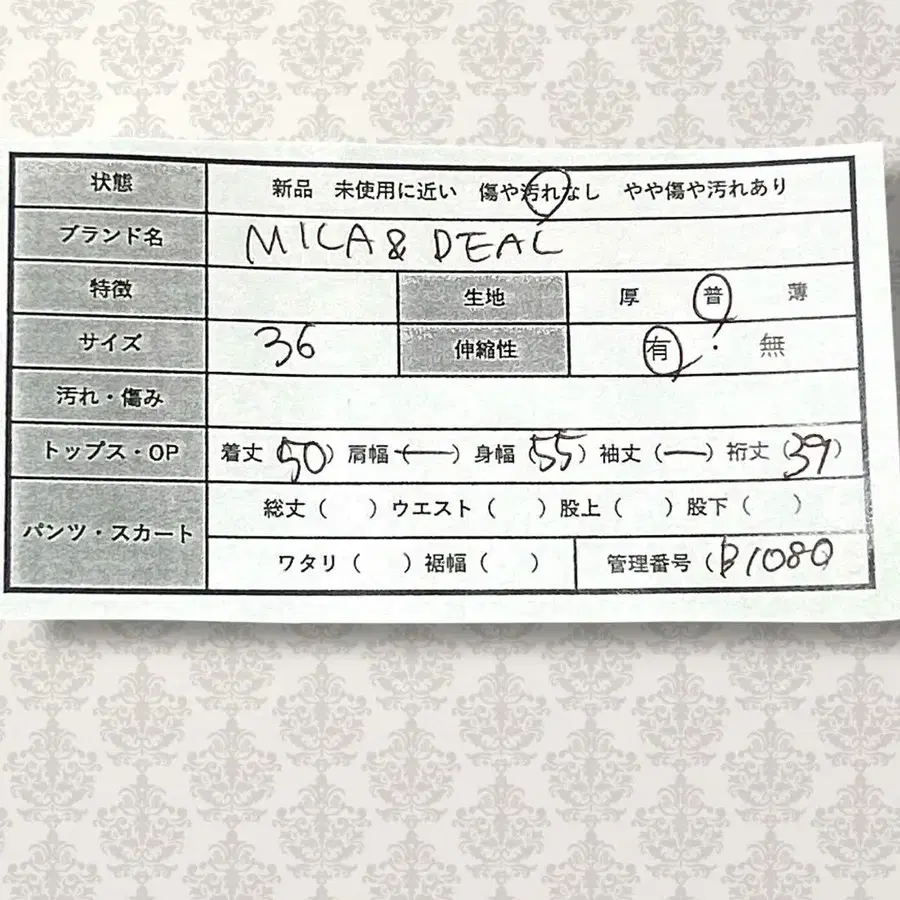 状態 新品 未使用に近い 傷や汚れなし やや傷や汚れあり
ブランド名 MILA & DEAL
特徴 生地 厚 普 薄
サイズ 36 伸縮性 有 ・ 無
汚れ・傷み
トップス・OP 着丈 (50) 肩幅 (—) 身幅 (55) 袖丈 (—) 裄丈 (39)
パンツ・スカート 総丈 ( ) ウエスト ( ) 股上 ( ) 股下 ( )
ワタリ ( ) 裾幅 ( ) 管理番号 (B1080